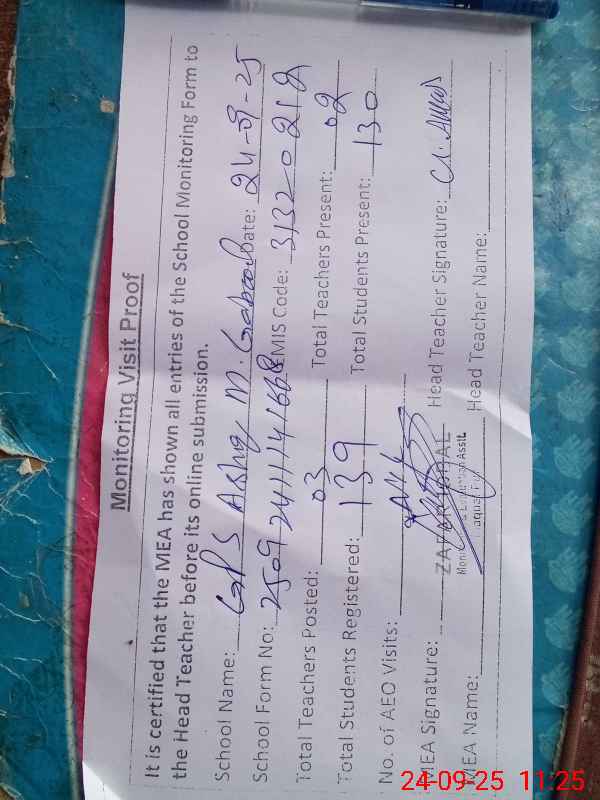 Monitoring Visit Proof
It is certified that the MEA has shown all entries of the School Monitoring Form to
the Head Teacher before its online submission.
School Name: GPS M. Date: 24-09-25
School Form No: EMIS Code: 31320212
Total Teachers Posted: 03 Total Teachers Present: 02
Total Students Registered: 139 Total Students Present: 130
No. of AEO Visits:
MEA Signature: Head Teacher Signature:
MEA Name: Head Teacher Name:
ZAFAR IQBAL
24-09-25 11:25